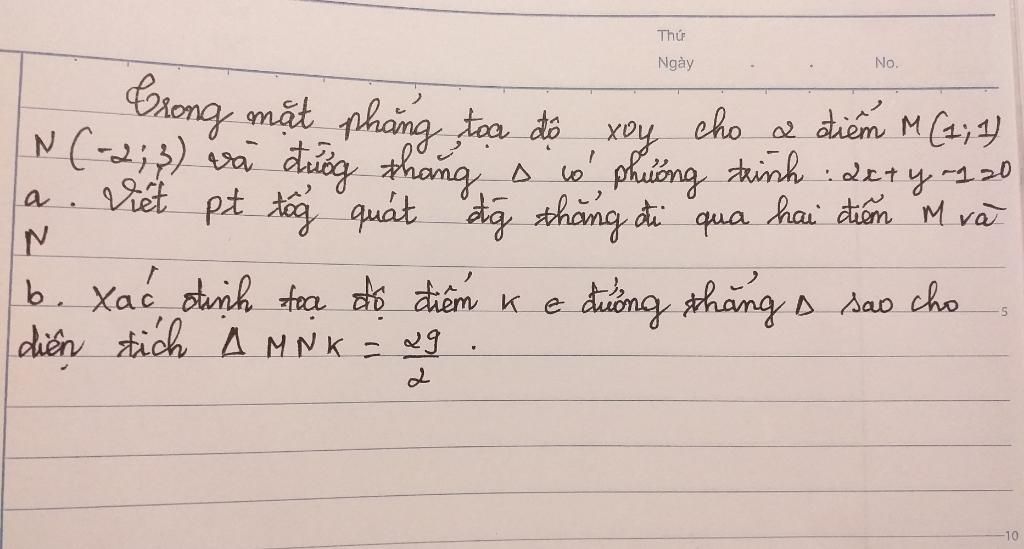 Thứ
Ngày . . No.
Trong mặt phẳng tọa độ xoy cho 2 điểm M(1;1)
N(-2;3) và đường thẳng Δ có phương trình : 2x+y-1=0
a. Viết pt tổg quát đg thẳng đi qua hai điểm M và
N
b. Xác định tọa độ điểm K e đường thẳng Δ sao cho
5
diện tích Δ MNK = 29/2 .
10